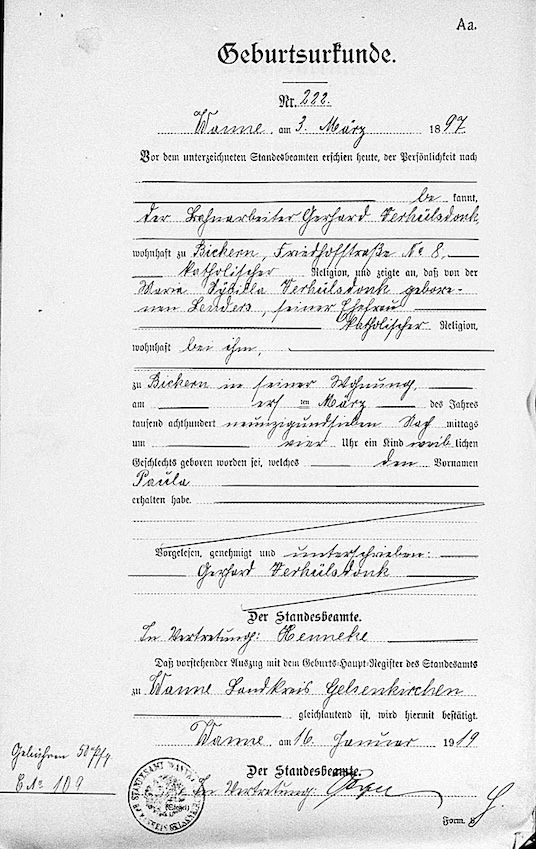 Aa.
Geburtsurkunde.
Nr. 222.
Wanne, am 3. März 1897
Vor dem unterzeichneten Standesbeamten erschien heute, der Persönlichkeit nach
be kannt,
der Bahnarbeiter Gerhard Verhülsdonk,
wohnhaft zu Bickern, Friedhofstraße No 8,
katholischer Religion, und zeigte an, daß von der
Maria Sybilla Verhülsdonk gebore-
nen Lenders, seiner Ehefrau
katholischer Religion,
wohnhaft bei ihm,
zu Bickern in seiner Wohnung,
am ers ten März des Jahres
tausend achthundert neunzigundsieben Nach mittags
um vier Uhr ein Kind weib lichen
Geschlechts geboren worden sei, welches den Vornamen
Paula
erhalten habe.
Vorgelesen, genehmigt und unterschrieben:
Gerhard Verhülsdonk
Der Standesbeamte.
In Vertretung: Henneke
Daß vorstehender Auszug mit dem Geburts-Haupt-Register des Standesamts
zu Wanne Landkreis Gelsenkirchen
gleichlautend ist, wird hiermit bestätigt.
Wanne, am 16. Januar 1919
Gebühren 50 Pfg
C No 109
Der Standesbeamte.
In Vertretung:
(Siegel)
Form. B